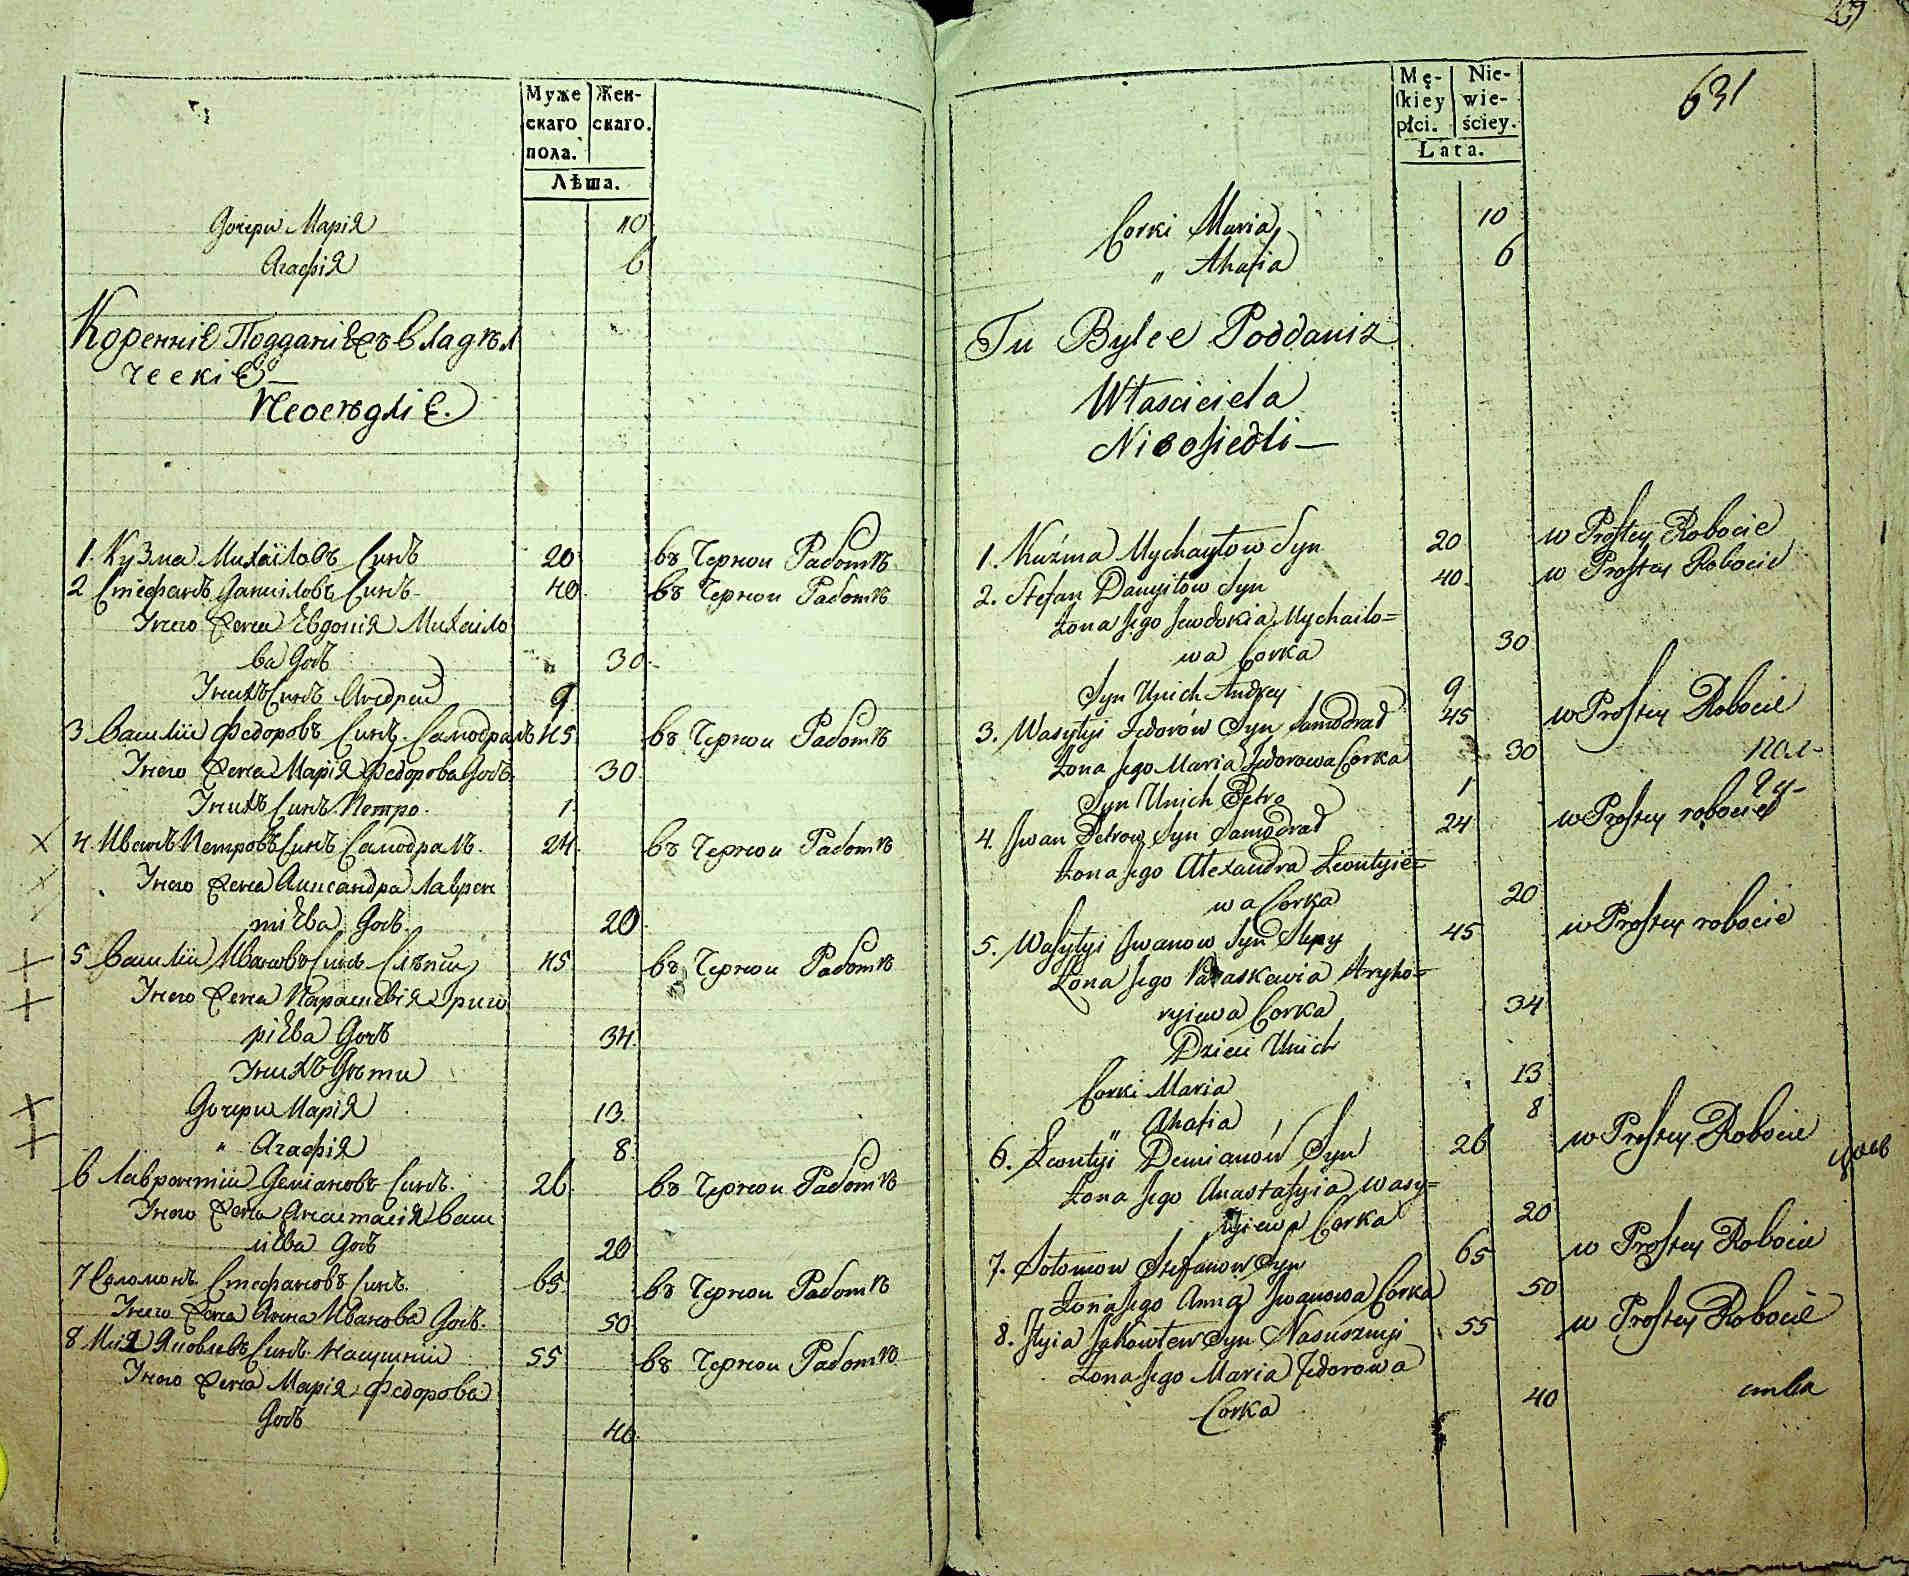 Муже
скаго
пола.
Жен-
скаго.
Лѣта.
Дочери Марія 10
Агафія 6
Коренніе Подданіе владѣл
ческіе
Неосѣдліе.
1. Кузма Михаіловъ Синъ 20 въ Чернои Работѣ
2 Стефанъ Даниловъ Синъ 40 въ Чернои Работѣ
Унего Жена Евдокія Михаіло
ва Доч 30
Унихъ Синъ Андреи 9
3 Василіи Федоровъ Синъ Самодралъ 45 въ Чернои Работѣ
Унего Жена Марія Федорова Доч 30
Унихъ Синъ Петро 1
4. Иванъ Петровъ Синъ Самодралъ 24 въ Чернои Работѣ
Унего Жена Александра Лаврен
тіева Доч 20
5 Василіи Ивановъ Синъ Слѣпіи 45 въ Чернои Работѣ
Унего Жена Парасковія Григо
ріева Доч 34
Унихъ Дѣти
Дочери Марія 13
" Агафія 8
6 Лаврентіи Деміановъ Синъ 26 въ Чернои Работѣ
Унего Жена Анастасія Васи
лієва Доч 20
7 Соломонъ Стефановъ Синъ 65 въ Чернои Работѣ
Унего Жена Анна Иванова Доч 50
8 Илія Яковлевъ Синъ Насушніи 55 въ Чернои Работѣ
Унего Жена Марія Федорова
Доч 40
Mę-
skiey
płci.
Nie-
wie-
ściey.
Lata.
631
Corki Maria 10
" Ahafia 6
Tu Bylce Poddaniz
Własciciela
Nieosiedli
1. Kuźma Mychayłow Syn 20 w Prostey Robocie
2. Stefan Danyiłow Syn 40 w Prostey Robocie
Zona Jego Jewdokia Mychaiło=
wa Corka 30
Syn Unich Andrey 9
3. Wasylyi Fedorów Syn Samodrad 45 w Prostey Robocie
Zona Jego Maria Fedorowa Corka 30
Syn Unich Petro 1
4. Jwan Petrow Syn Samodrad 24 w Prostey robocie
Zona Jego Alexandra Leontyie=
wa Corka 20
5. Wasylyi Jwanow Syn Slipy 45 w Prostey robocie
Zona Jego Paraskewia Hryho=
ryiewa Corka 34
Dzieci Unich
Corki Maria 13
" Ahafia 8
6. Leontyi Demianów Syn 26 w Prostey Robocie
Zona Jego Anastasyia Wasy=
lyiewa Corka 20
7. Sołomon Stefanow Syn 65 w Prostey Robocie
Zona Jego Anna Jwanowa Corka 50
8. Jlyia Jakowlew Syn Nasusznyi 55 w Prostey Robocie
Zona Jego Maria Fedorowa
Corka 40